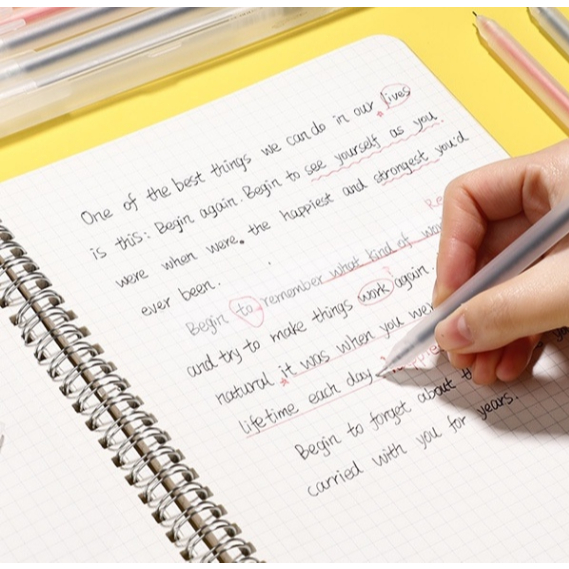 One of the best things we can do in our lives
is this: Begin again. Begin to see yourself as you
were when were. the happiest and strongest you'd
ever been.
Begin to remember what kind of
and try to make things work again.
natural it was when you
lifetime each day
Begin to forget about
carried with you for years.